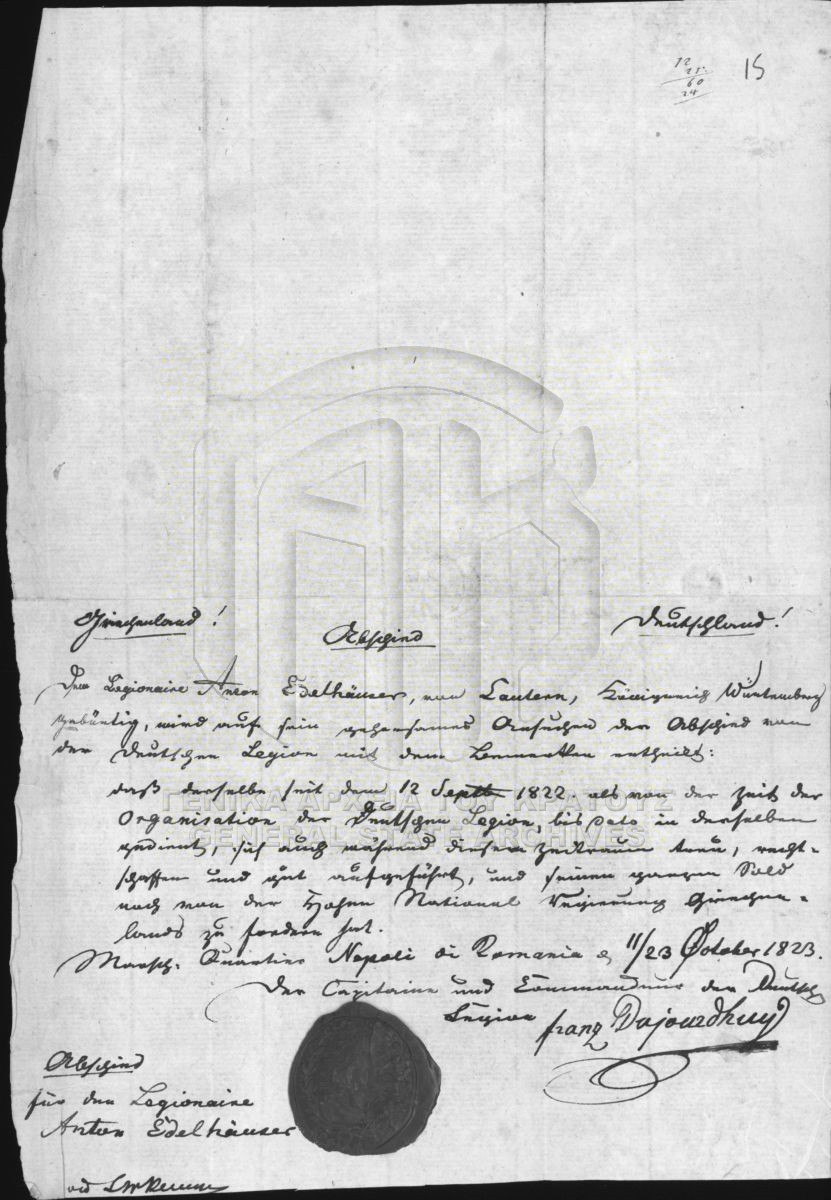 12
25
60
24
15
Griechenland!
Deutschland!
Abschied
Dem Legionaire Anton Edelhäuser, von Lautern, Königreich Würtemberg
gebürtig, wird auf sein gehorsames Ansuchen der Abschied von
der Deutschen Legion mit dem Bemerken ertheilt:
daß derselbe seit dem 12 Septb 1822 als von der Zeit der
Organisation der Deutschen Legion, bis dato in derselben
gedient, sich auch während diesem Zeitraum treu, recht-
schaffen und gut aufgeführt, und seinen ganzen Sold
noch von der Hohen National Regierung Griechen-
lands zu fordern hat.
Marsch. Quartier Napoli di Romania 11/23 October 1823.
Der Capitaine und Commandeur der Deutsch
Legion
franz Dujourdhuy
Abschied
für den Legionaire
Anton Edelhäuser
ΓΕΝΙΚΑ ΑΡΧΕΙΑ ΤΟΥ ΚΡΑΤΟΥΣ
GENERAL STATE ARCHIVES